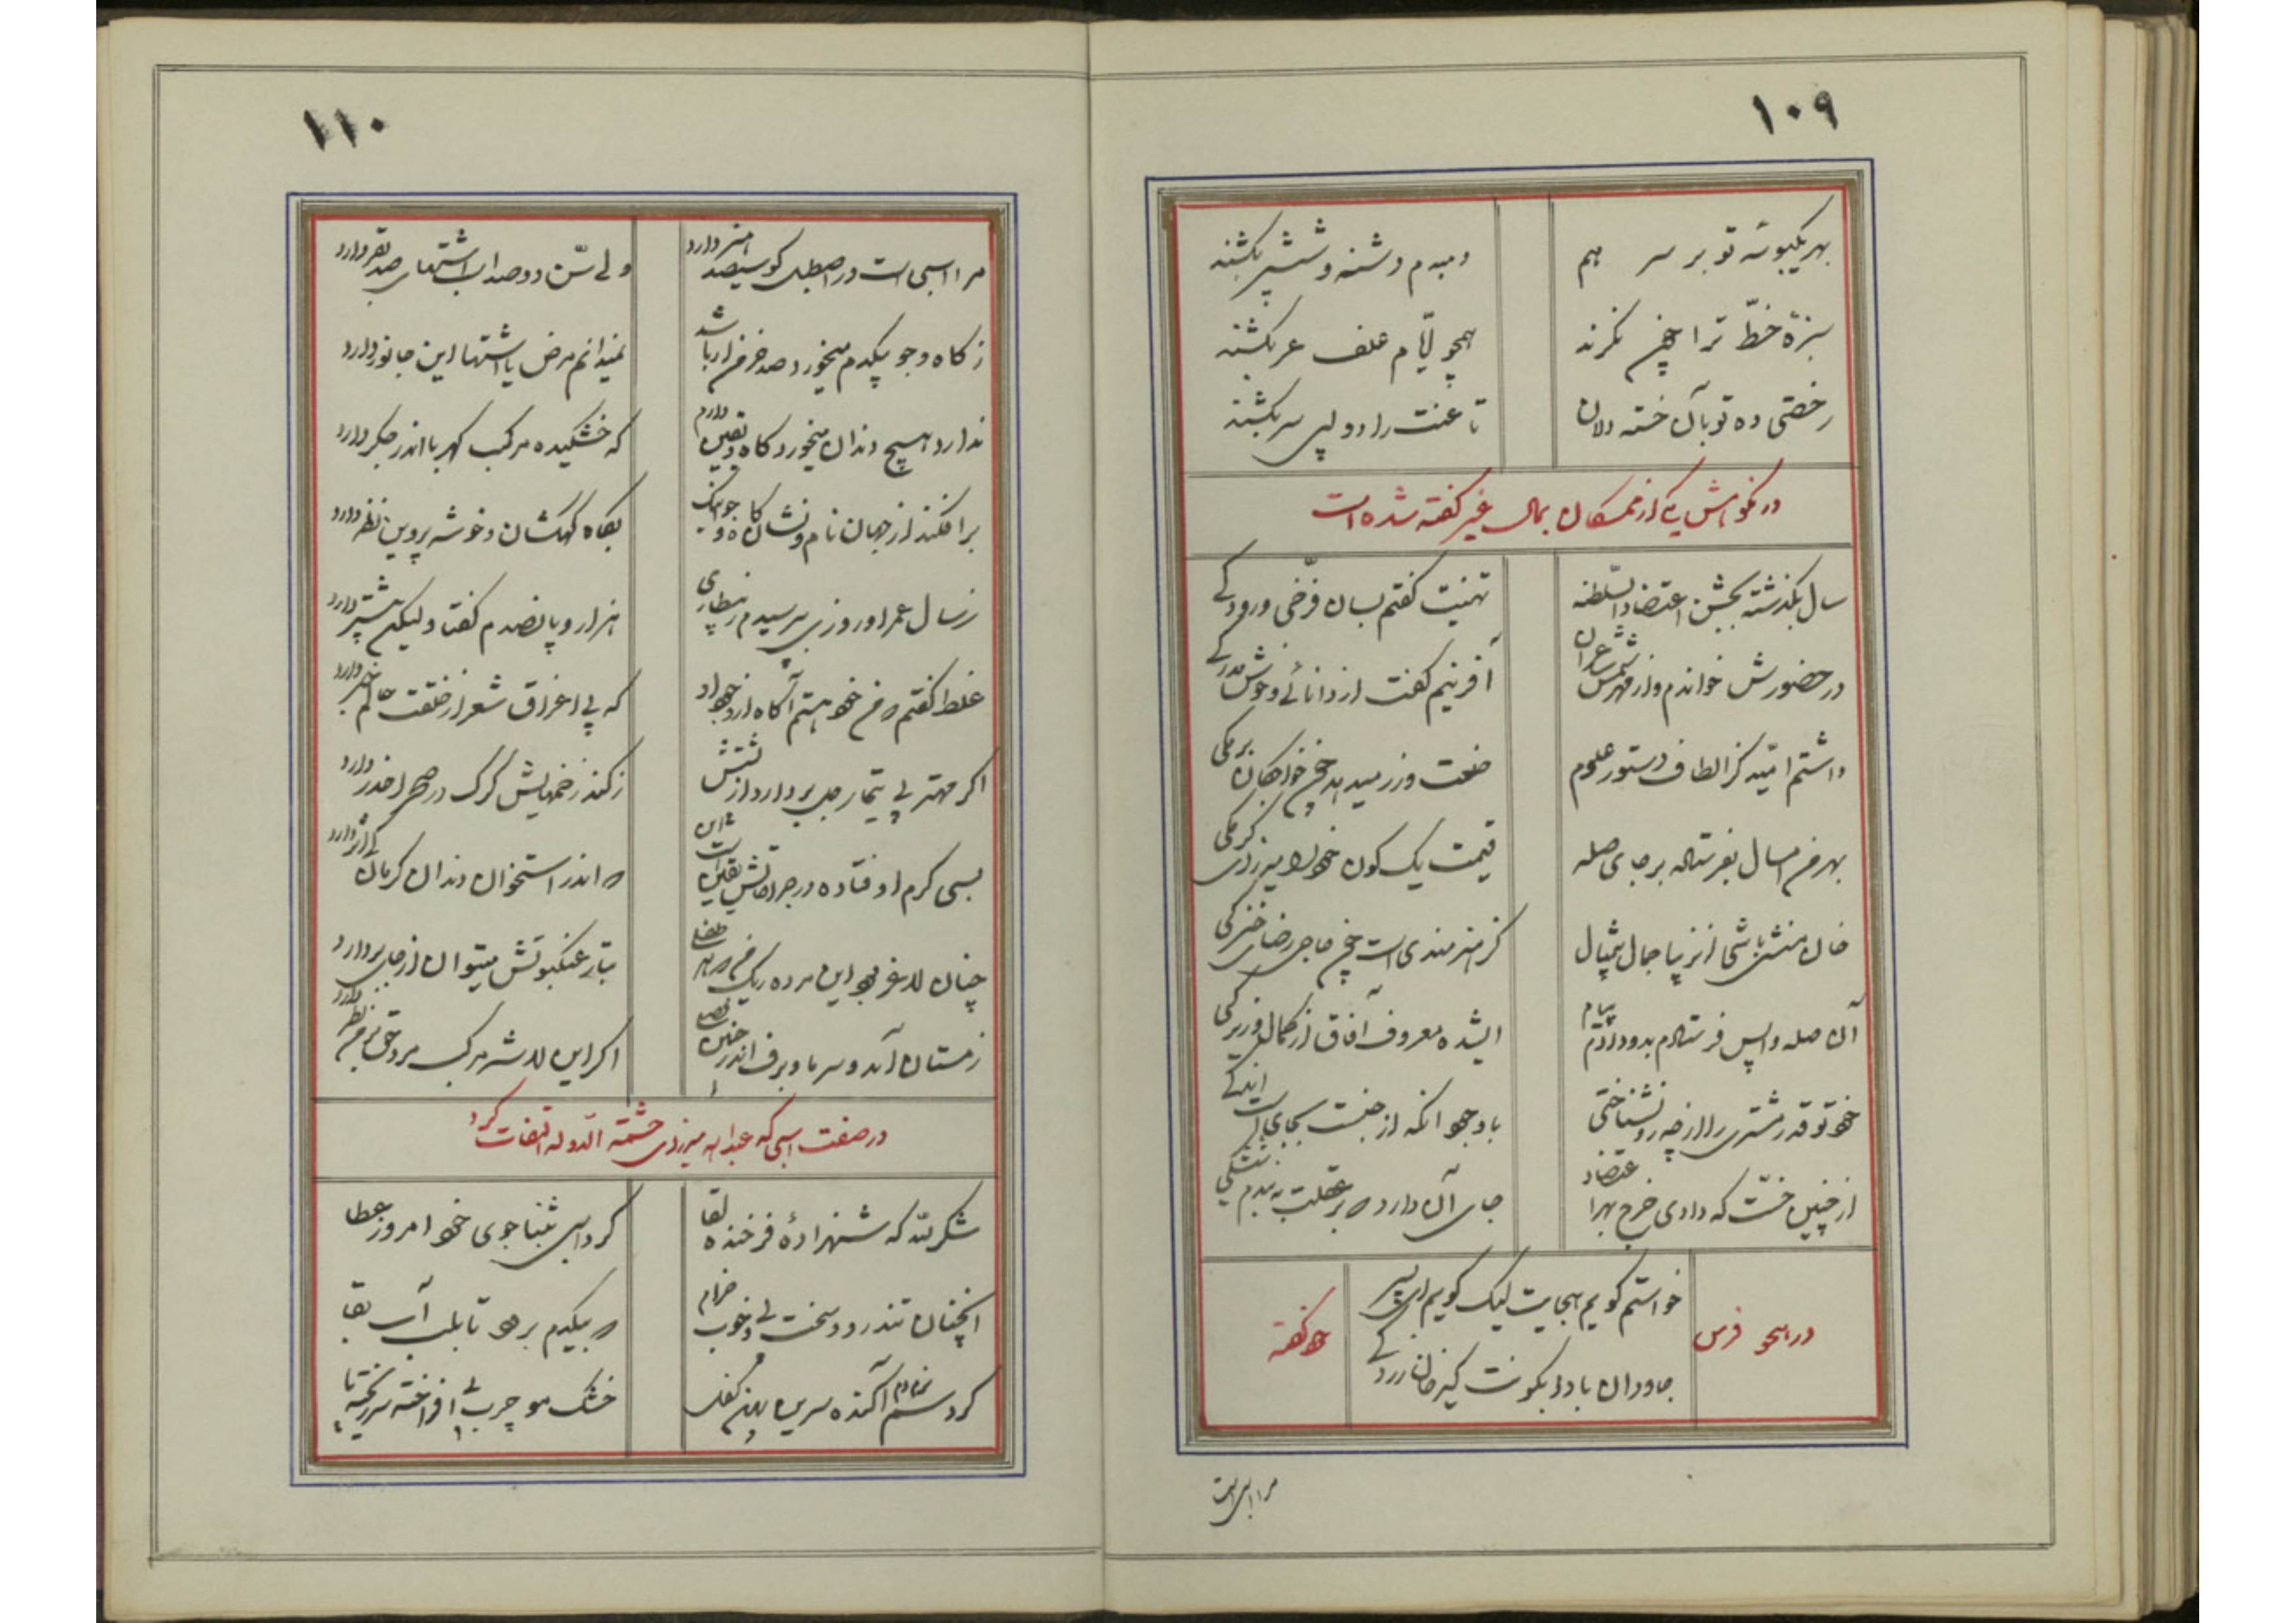 ۱۰۹
بهر یکبوسه تو بر سر هم
دمبدم دشنه و شمشیر بکشند
سبزهٔ خطّ ترا چون نگرند
همچو لیّام علف عر بکشند
رخصتی ده تو بآن خسته دلان
تا غمت را دو لپی سر بکشند
در نکوهش یکی از همگان بمال غیر گفته شده است
سال بگذشته بجشن اعتضادالسّلطنه
تهنیت گفتم بسان فرّخی و رودکی
در حضورش خواندم و از
آفرینم گفت از دانائی و خوش مدرکی
داشتم امّید کز الطاف دستور علوم
خلعت و زر میدهد چون خواجگان برمکی
بهر من امسال بفرستاد بر جای صله
قیمت یک کون خود را میرزای کرمکی
خان منشی باشی از
گر هنرمندی است چون حاجی رضای خنزرکی
آن صله واپس فرستادم بدو دادم پیام
ایشده معروف آفاق از کمال زیرکی
خود تو قدر مشتری را از چه رو نشناختی
با وجود انکه از جنست بجای است اندکی
از چنین خسّت که دادی خرج بهر اعتضاد
جای آن دارد که بر عقلت
در هجو فرس
خواستم گویم هجایت لیک گویم ای پسر
جاودان بادا بکونت کیر خان
خود گفته
مرا اسبی است
۱۱۰
مرا اسبی است در اصطبل کو سیصد هنر دارد
ولی سنّ دوصد اسب اشتهای صد بقر دارد
ز کاه و جو بیکدم میخورد صد خرمن ار باشد
نمیدانم مرض یا اشتها این جانور دارد
ندارد هیچ دندان میخورد کاه و یقین دارم
که خشکیده مرکب کهربا اندر جگر دارد
برافکند از جهان نام و نشان کاه و جو اینک
بکاه کهکشان و خوشه پروین نظر دارد
ز سال عمر او روزی بپرسیدم ز بیطاری
هزار و پانصدم گفتا ولیکن بیشتر دارد
غلط گفتم که من خود نیستم آگاه از جود او
که بی اغراق شعر از خلقت عالم خبر دارد
اگر مهتر پی تیمار جل بردارد از پشتش
ز گند زخمهایش گرگ در صحرا حذر دارد
بسی کرم اوفتاده در جراحاتش یقین است این
که اندر استخوان دندان کرمان کی اثر دارد
چنان لاغر بود این مرده ریگ من که هر طفلی
بتار عنکبوتش میتوان از جای بردارد
زمستان آمد و سرما و برف اندر چنین فصلی
اگر این لاشه مرکب مرد حق بر من نظر دارد
در صفت اسبی که عبدالله میرزای حشمة الدّوله التفات کرد
شکر لله که شهزادهٔ فرخنده لقا
کرد اسبی بثناجوی خود امروز عطا
انچنان تندرو و سخت پی و خوب خرام
که بیکدم برود تا بلب آب بقا
گرد سم نرم دم آکنده سرین پهن کفل
خشک مو چرب پی افراخته سر